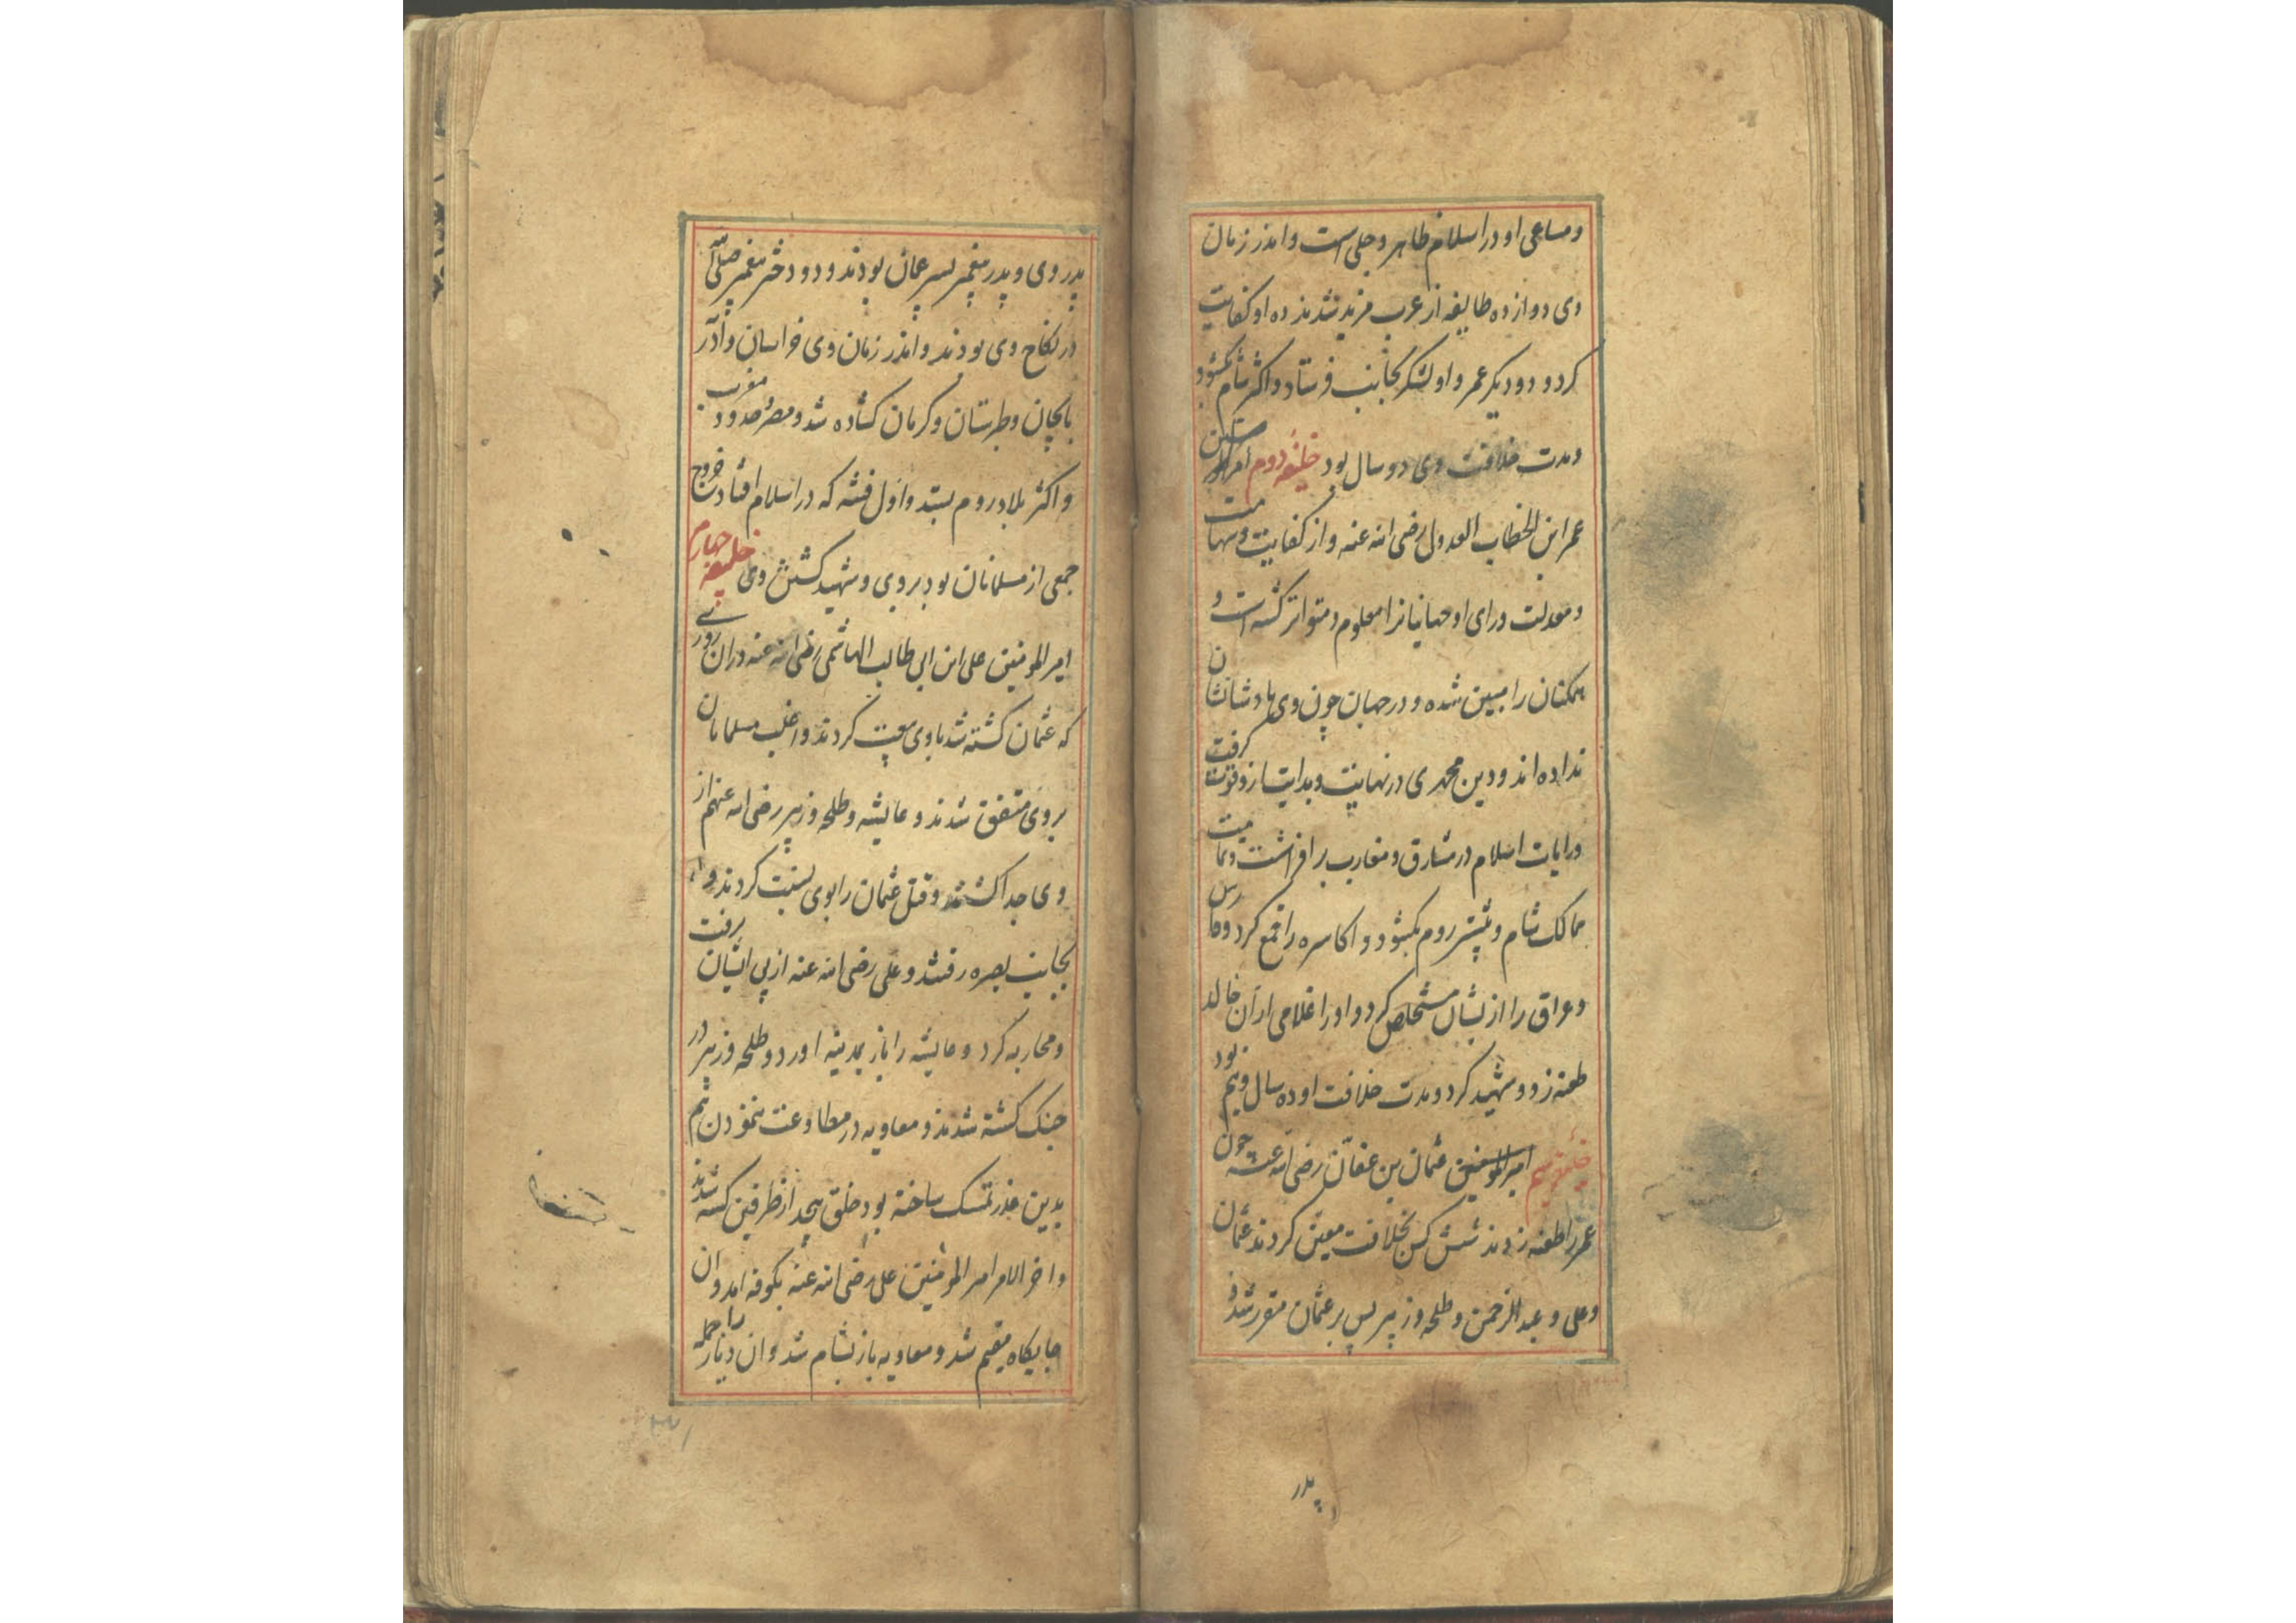 و مساعی او در اسلام ظاهر و جلی است و اندر زمان
وی دوازده طایفه از عرب مزید شدند ده او کفایت
کرد و دو دیگر عمر و او لشکر بجانب فرستاد و اکثر شام بکشود
و مدت خلافت وی دو سال بود خلیفه دوم
عمر ابن الخطاب العدول رضی الله عنه و از کفایت و شهامت
و معدلت و رای او جهانیانرا معلوم و متواتر کشته است و
همکنان را مبین شده و در جهان چون وی پادشا نشان
نداده اند و دین محمدی در نهایت و بدایت ازو قوت کرفت
و رایات اسلام در مشارق و مغارب برافراشت و تمامیت
ممالک شام و بیشتر روم بکشود و اکاسره را قمع کرد و فارس
و عراق را ازیشان مستخلص کرد و او را غلامی از آن خالد
طعنه زد و شهید کرد و مدت خلافت او ده سال و نیم بود
خلیفه سیم امیر المومنین عثمان بن عفان رضی الله عنه چون
عمر را طعنه زدند شش کس بخلافت معین کردند عثمان
و علی و عبد الرحمن و طلحه و زبیر پس بر عثمان مقرر شد و
پدر
پدر وی و پدر پیغمبر پسر عمان بودند و دو دختر پیغمبر صلی الله
در نکاح وی بودند و اندر زمان وی خراسان و آذر
بایجان و طبرستان و کرمان کشاده شد و مصر و حدود مغرب
و اکثر بلاد روم بستد و اول فتنه که در اسلام افتاد خروج
جمعی از مسلمانان بود بر وی و شهید کشتن وی خلیفه چهارم
امیر المومنین علی ابن ابی طالب الهاشمی رضی الله عنه در ان روزی
که عثمان کشته شد با وی بیعت کردند و اغلب مسلمانان
بر وی متفق شدند و عایشه و طلحه و زبیر رضی الله عنهم از
وی جدا کشتند و قتل عثمان را بوی نسبت کردند و
بجانب بصره رفتند و علی رضی الله عنه از پی ایشان برفت
و محاربه کرد و عایشه را باز بمدینه اورد و طلحه و زبیر در
جنک کشته شدند و معاویه در مطاوعت ننمودن هم
بدین عذر تمسک ساخته بود خلق بیحد از طرفین کشته شدند
و اخر الامر امیر المومنین علی رضی الله عنه بکوفه امد و ان
جایکاه مقیم شد و معاویه باز بشام شد و ان دیار را جمله